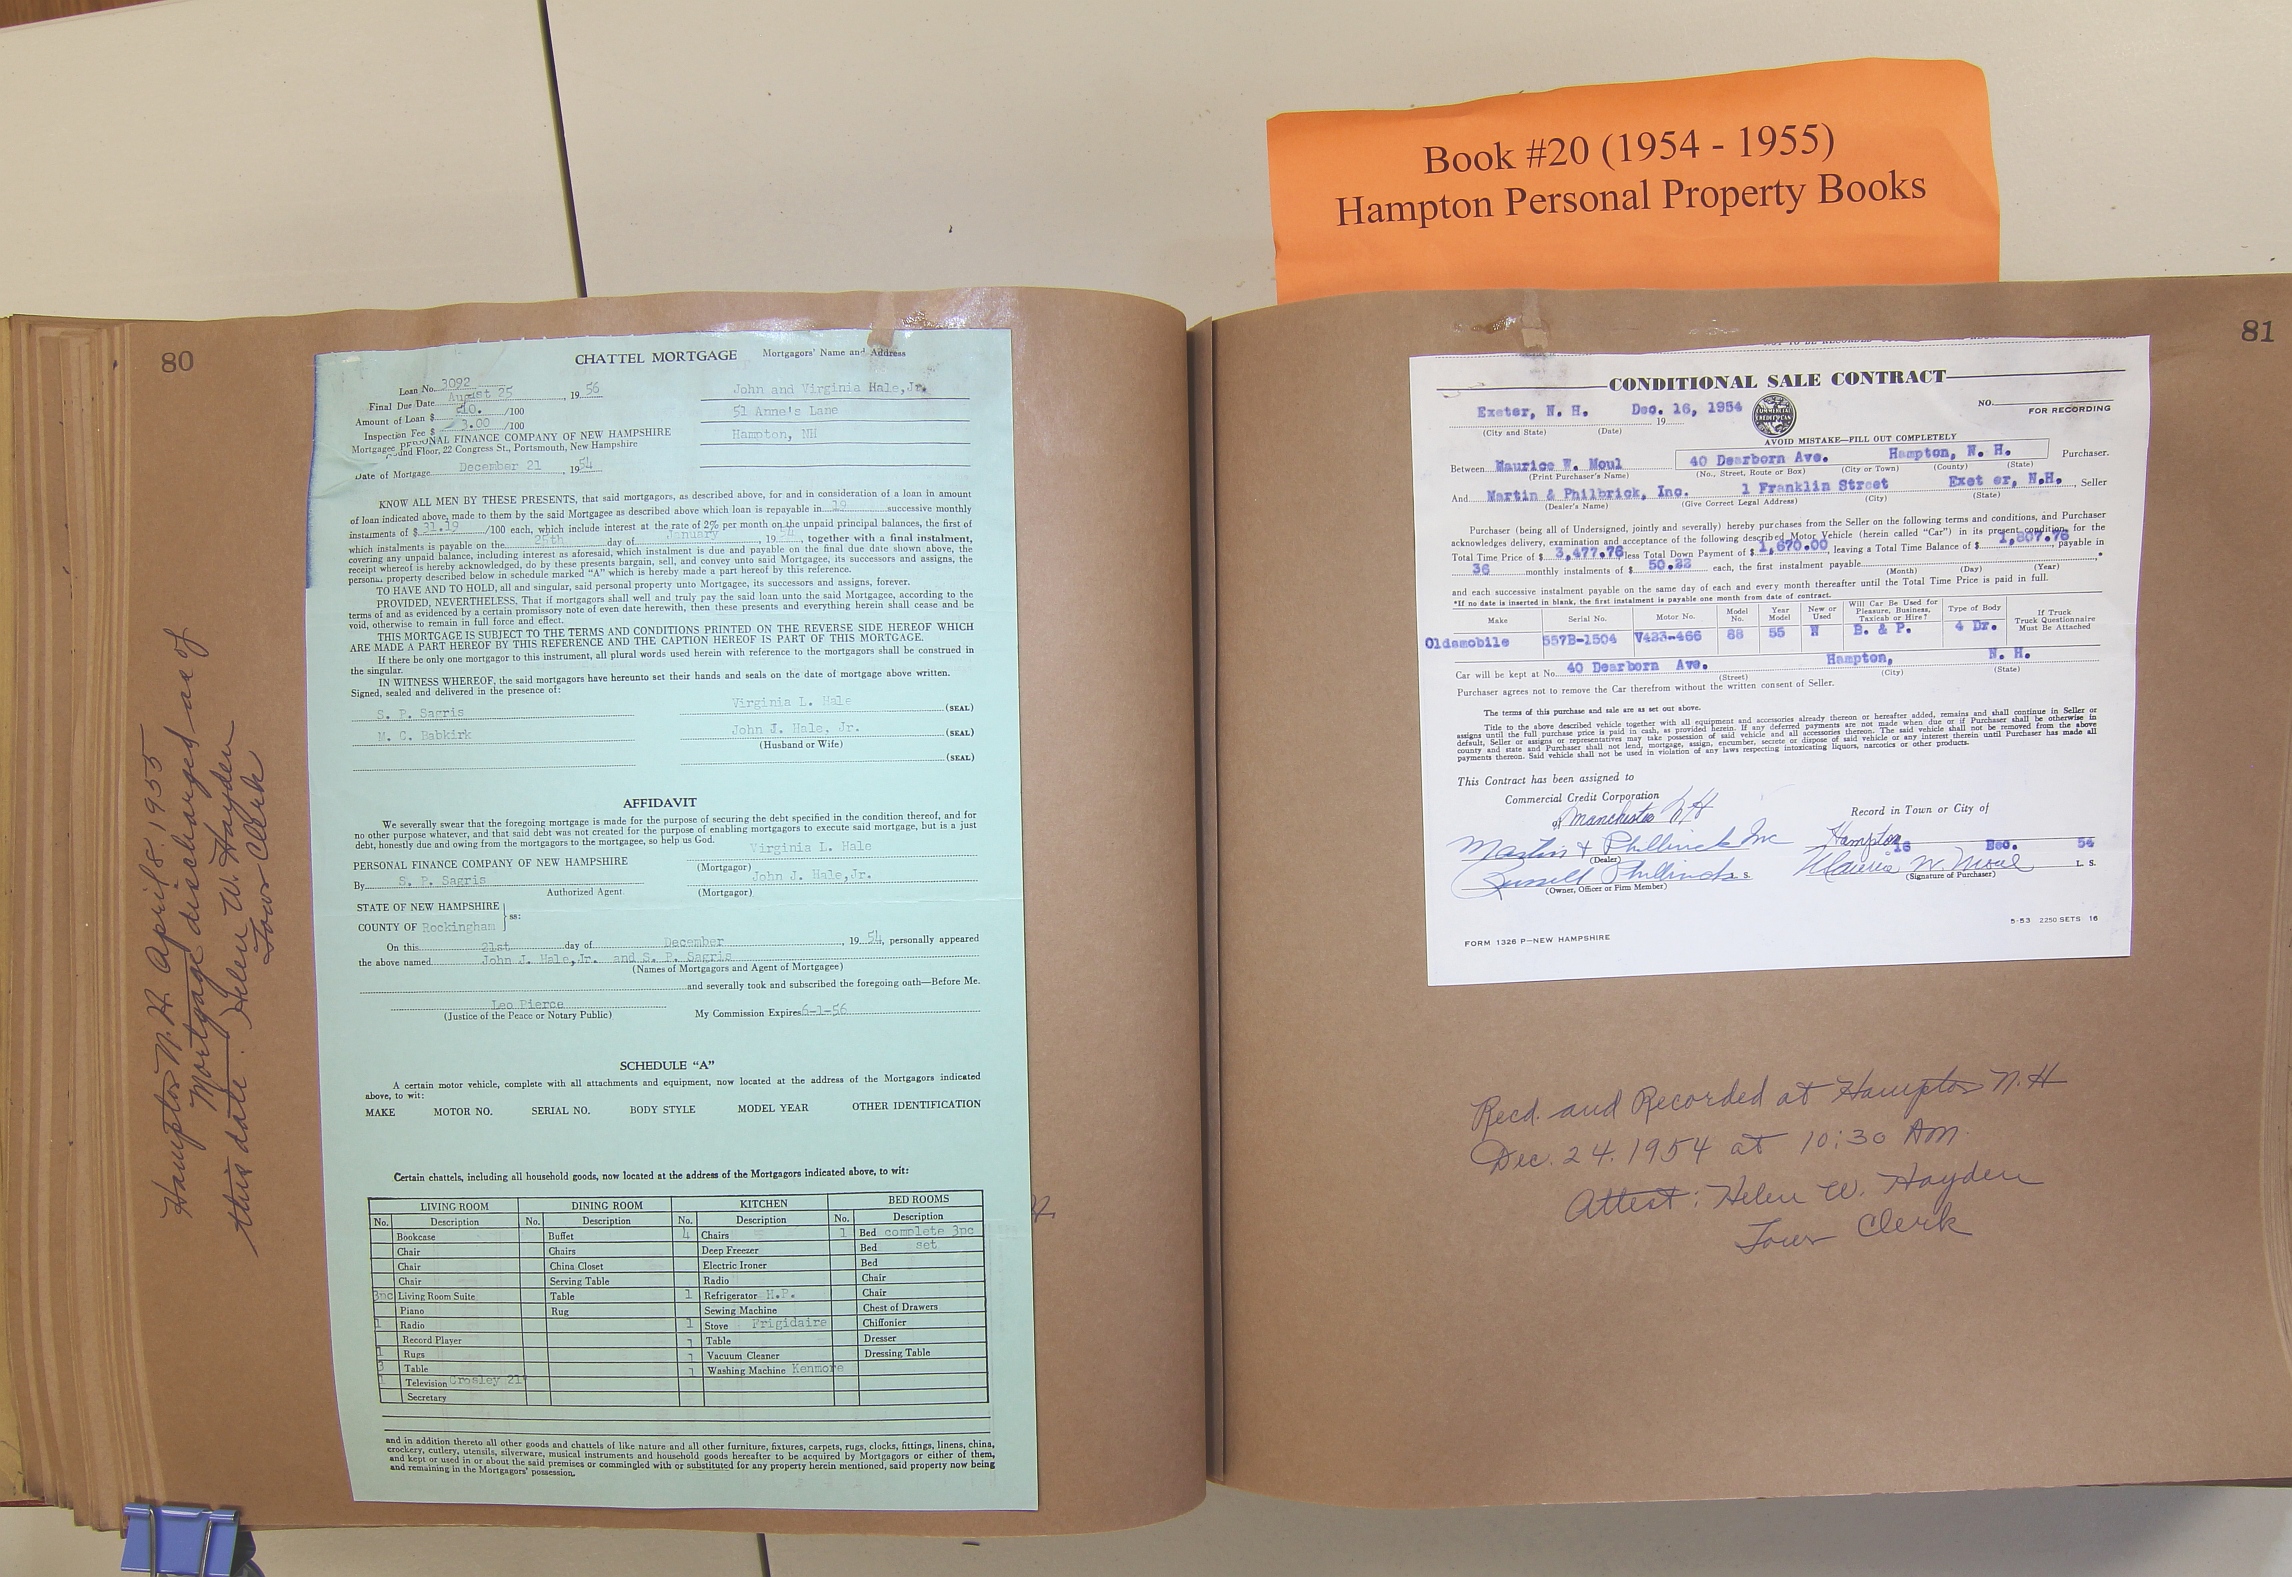 Book #20 (1954 - 1955)
Hampton Personal Property Books
80
CHATTEL MORTGAGE
Mortgagors' Name and Address
Loan No. 3092
Final Due Date August 25, 1956
Amount of Loan $ /100
Inspection Fee $ 3.00 /100
Mortgagee PERSONAL FINANCE COMPANY OF NEW HAMPSHIRE
Floor, 22 Congress St., Portsmouth, New Hampshire
Date of Mortgage December 21, 1954
John and Virginia Hale, Jr.
51 Anne's Lane
Hampton, NH
KNOW ALL MEN BY THESE PRESENTS, that said mortgagors, as described above, for and in consideration of a loan in amount
of loan indicated above, made to them by the said Mortgagee as described above which loan is repayable in 19 successive monthly
instalments of $ 31.19 /100 each, which include interest at the rate of 2% per month on the unpaid principal balances, the first of
which instalments is payable on the 25th day of January, 1954, together with a final instalment,
covering any unpaid balance, including interest as aforesaid, which instalment is due and payable on the final due date shown above, the
receipt whereof is hereby acknowledged, do by these presents bargain, sell, and convey unto said Mortgagee, its successors and assigns, the
personal property described below in schedule marked "A" which is hereby made a part hereof by this reference.
TO HAVE AND TO HOLD, all and singular, said personal property unto Mortgagee, its successors and assigns, forever.
PROVIDED, NEVERTHELESS, That if mortgagors shall well and truly pay the said loan unto the said Mortgagee, according to the
terms of and as evidenced by a certain promissory note of even date herewith, then these presents and everything herein shall cease and be
void, otherwise to remain in full force and effect.
THIS MORTGAGE IS SUBJECT TO THE TERMS AND CONDITIONS PRINTED ON THE REVERSE SIDE HEREOF WHICH
ARE MADE A PART HEREOF BY THIS REFERENCE AND THE CAPTION HEREOF IS PART OF THIS MORTGAGE.
If there be only one mortgagor to this instrument, all plural words used herein with reference to the mortgagors shall be construed in
the singular.
IN WITNESS WHEREOF, the said mortgagors have hereunto set their hands and seals on the date of mortgage above written.
Signed, sealed and delivered in the presence of:
S. P. Sagris
Virginia L. Hale (SEAL)
M. C. Babkirk
John J. Hale, Jr. (SEAL)
(Husband or Wife)
(SEAL)
AFFIDAVIT
We severally swear that the foregoing mortgage is made for the purpose of securing the debt specified in the condition thereof, and for
no other purpose whatever, and that said debt was not created for the purpose of enabling mortgagors to execute said mortgage, but is a just
debt, honestly due and owing from the mortgagors to the mortgagee, so help us God.
Virginia L. Hale
PERSONAL FINANCE COMPANY OF NEW HAMPSHIRE
(Mortgagor)
By S. P. Sagris
John J. Hale, Jr.
Authorized Agent
(Mortgagor)
STATE OF NEW HAMPSHIRE
ss:
COUNTY OF Rockingham
On this 21st day of December, 1954, personally appeared
the above named John J. Hale, Jr. and S. P. Sagris
(Names of Mortgagors and Agent of Mortgagee)
and severally took and subscribed the foregoing oath—Before Me.
Leo Pierce
(Justice of the Peace or Notary Public)
My Commission Expires 6-1-56
SCHEDULE "A"
A certain motor vehicle, complete with all attachments and equipment, now located at the address of the Mortgagors indicated
above, to wit:
MAKE MOTOR NO. SERIAL NO. BODY STYLE MODEL YEAR OTHER IDENTIFICATION
Certain chattels, including all household goods, now located at the address of the Mortgagors indicated above, to wit:
LIVING ROOM DINING ROOM KITCHEN BED ROOMS
No. Description No. Description No. Description No. Description
Bookcase Buffet 4 Chairs 1 Bed complete 3pc
Chair Chairs Deep Freezer Bed set
Chair China Closet Electric Ironer Bed
Chair Serving Table Radio Chair
3pc Living Room Suite Table 1 Refrigerator H.P. Chair
Piano Rug Sewing Machine Chest of Drawers
1 Radio 1 Stove Frigidaire Chiffonier
Record Player 1 Table Dresser
1 Rugs 1 Vacuum Cleaner Dressing Table
3 Table 1 Washing Machine Kenmore
1 Television Crosley 21"
Secretary
and in addition thereto all other goods and chattels of like nature and all other furniture, fixtures, carpets, rugs, clocks, fittings, linens, china,
crockery, cutlery, utensils, silverware, musical instruments and household goods hereafter to be acquired by Mortgagors or either of them,
and kept or used in or about the said premises or commingled with or substituted for any property herein mentioned, said property now being
and remaining in the Mortgagors' possession.
Hampton N.H. April 8, 1955
Mortgage discharged as of
this date. Helen W. Hayden
Town Clerk
81
CONDITIONAL SALE CONTRACT
Exeter, N. H. Dec. 16, 1954
19
(City and State) (Date)
COMMERCIAL CREDIT PLAN
NO.
FOR RECORDING
AVOID MISTAKE—FILL OUT COMPLETELY
Between Maurice W. Moul 40 Dearborn Ave. Hampton, N. H. Purchaser.
(Print Purchaser's Name) (No., Street, Route or Box) (City or Town) (County) (State)
And Martin & Philbrick, Inc. 1 Franklin Street Exeter, N.H., Seller
(Dealer's Name) (Give Correct Legal Address) (City) (State)
Purchaser (being all of Undersigned, jointly and severally) hereby purchases from the Seller on the following terms and conditions, and Purchaser
acknowledges delivery, examination and acceptance of the following described Motor Vehicle (herein called "Car") in its present condition, for the
Total Time Price of $ 3,477.76 less Total Down Payment of $ 1,670.00 leaving a Total Time Balance of $ 1,807.76, payable in
36 monthly instalments of $ 50.22 each, the first instalment payable *
(Month) (Day) (Year)
and each successive instalment payable on the same day of each and every month thereafter until the Total Time Price is paid in full.
*If no date is inserted in blank, the first instalment is payable one month from date of contract.
Make Serial No. Motor No. Model No. Year Model New or Used Will Car Be Used for Pleasure, Business, Taxicab or Hire? Type of Body If Truck Truck Questionnaire Must Be Attached
Oldsmobile 557B-1504 V423-466 88 55 N B. & P. 4 Dr.
Car will be kept at No. 40 Dearborn Ave. Hampton, N. H.
(Street) (City) (State)
Purchaser agrees not to remove the Car therefrom without the written consent of Seller.
The terms of this purchase and sale are as set out above.
Title to the above described vehicle together with all equipment and accessories already thereon or hereafter added, remains and shall continue in Seller or
assigns until the full purchase price is paid in cash, as provided herein. If any deferred payments are not made when due or if Purchaser shall be otherwise in
default, Seller or assigns or representatives may take possession of said vehicle and all accessories thereon. The said vehicle shall not be removed from the above
county and state and Purchaser shall not lend, mortgage, assign, encumber, secrete or dispose of said vehicle or any interest therein until Purchaser has made all
payments thereon. Said vehicle shall not be used in violation of any laws respecting intoxicating liquors, narcotics or other products.
This Contract has been assigned to
Commercial Credit Corporation
of Manchester N.H
Record in Town or City of
Hampton
Martin & Philbrick Inc
16 Dec. 54
(Dealer)
Russell Philbrick
L. S.
Maurice W. Moul
(Owner, Officer or Firm Member)
(Signature of Purchaser)
5-53 2250 SETS 16
FORM 1326 P—NEW HAMPSHIRE
Recd. and Recorded at Hampton N.H
Dec. 24, 1954 at 10:30 AM.
Attest: Helen W. Hayden
Town Clerk